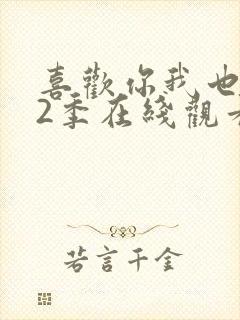 喜歡你我也
2季在綫觀
若言千金